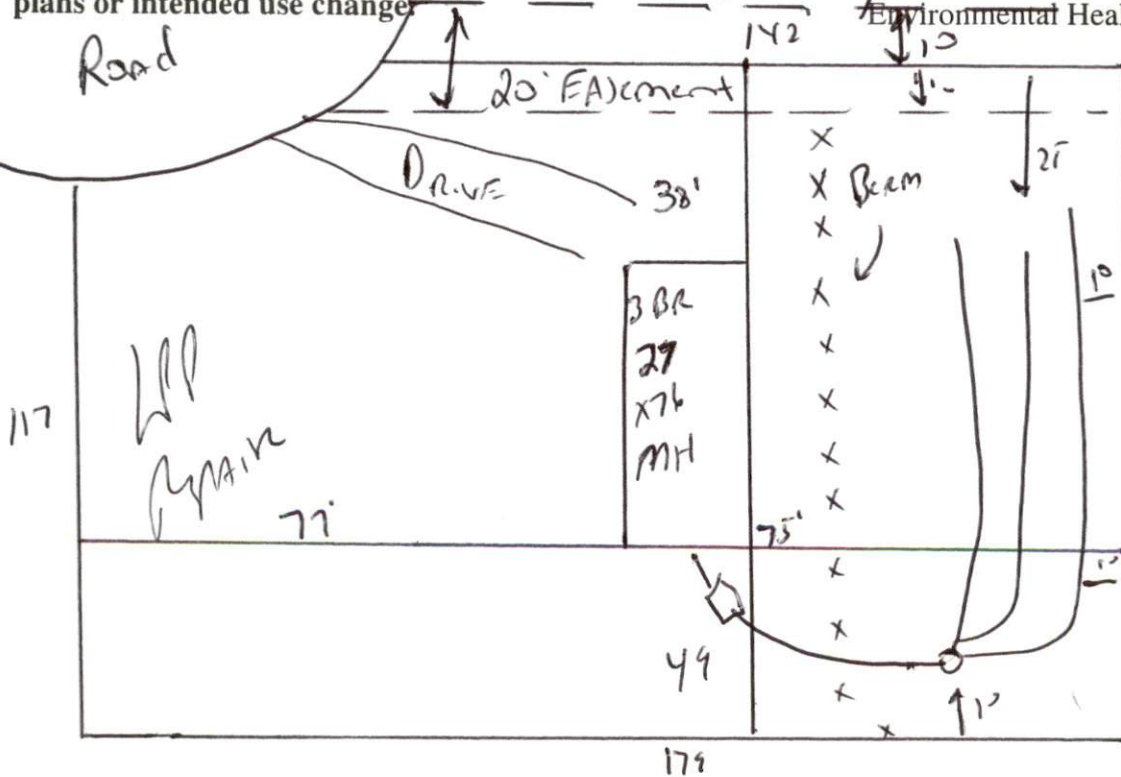 plans or intended use change
Environmental Heal
142
10
Road
20' EASement
25
DRIVE
38'
Berm
10
3 BR
27
x76
MH
117
REPAIR
77'
75'
49
10
179